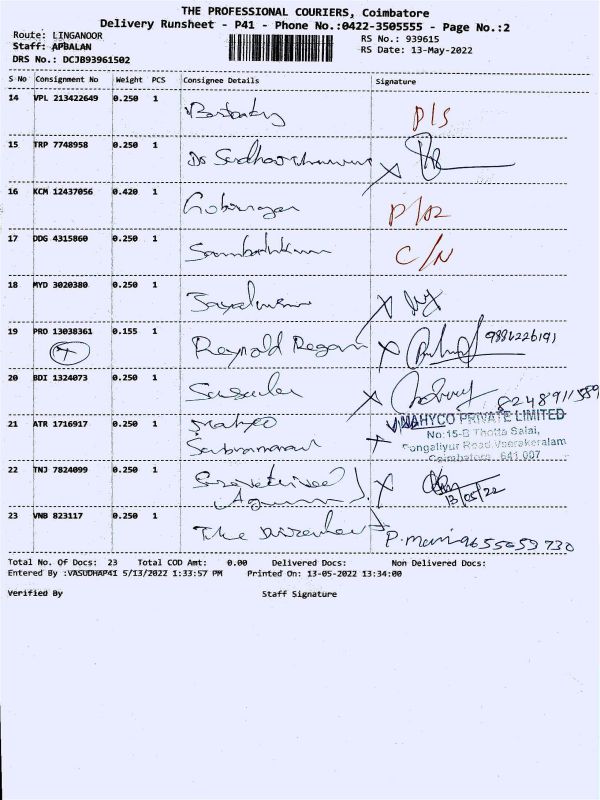 THE PROFESSIONAL COURIERS, Coimbatore
Delivery Runsheet - P41 - Phone No.:0422-3505555 - Page No.:2
Route: LINGANOOR
RS No.: 939615
Staff: APBALAN
RS Date: 13-May-2022
DRS No.: DCJB93961502
S No Consignment No Weight PCS Consignee Details Signature
14 VPL 213422649 0.250 1
P/S
15 TRP 7748958 0.250 1 Dr
16 KCM 12437056 0.420 1
17 DDG 4315860 0.250 1
C/N
18 MYD 3020380 0.250 1
19 PRO 13038361 0.155 1 Reynold Regan
9886226191
20 BDI 1324073 0.250 1
8248911589
21 ATR 1716917 0.250 1 Mahyco
MAHYCO PRIVATE LIMITED
No:15-B Thotta Salai,
Pongaliyur Road Veerakeralam
Coimbatore 641 007
22 TNJ 7824099 0.250 1
13/05/22
23 VNB 823117 0.250 1 The
P. mani 9655659730
Total No. Of Docs: 23 Total COD Amt: 0.00 Delivered Docs: Non Delivered Docs:
Entered By :VASUDHAP41 5/13/2022 1:33:57 PM Printed On: 13-05-2022 13:34:00
Verified By Staff Signature